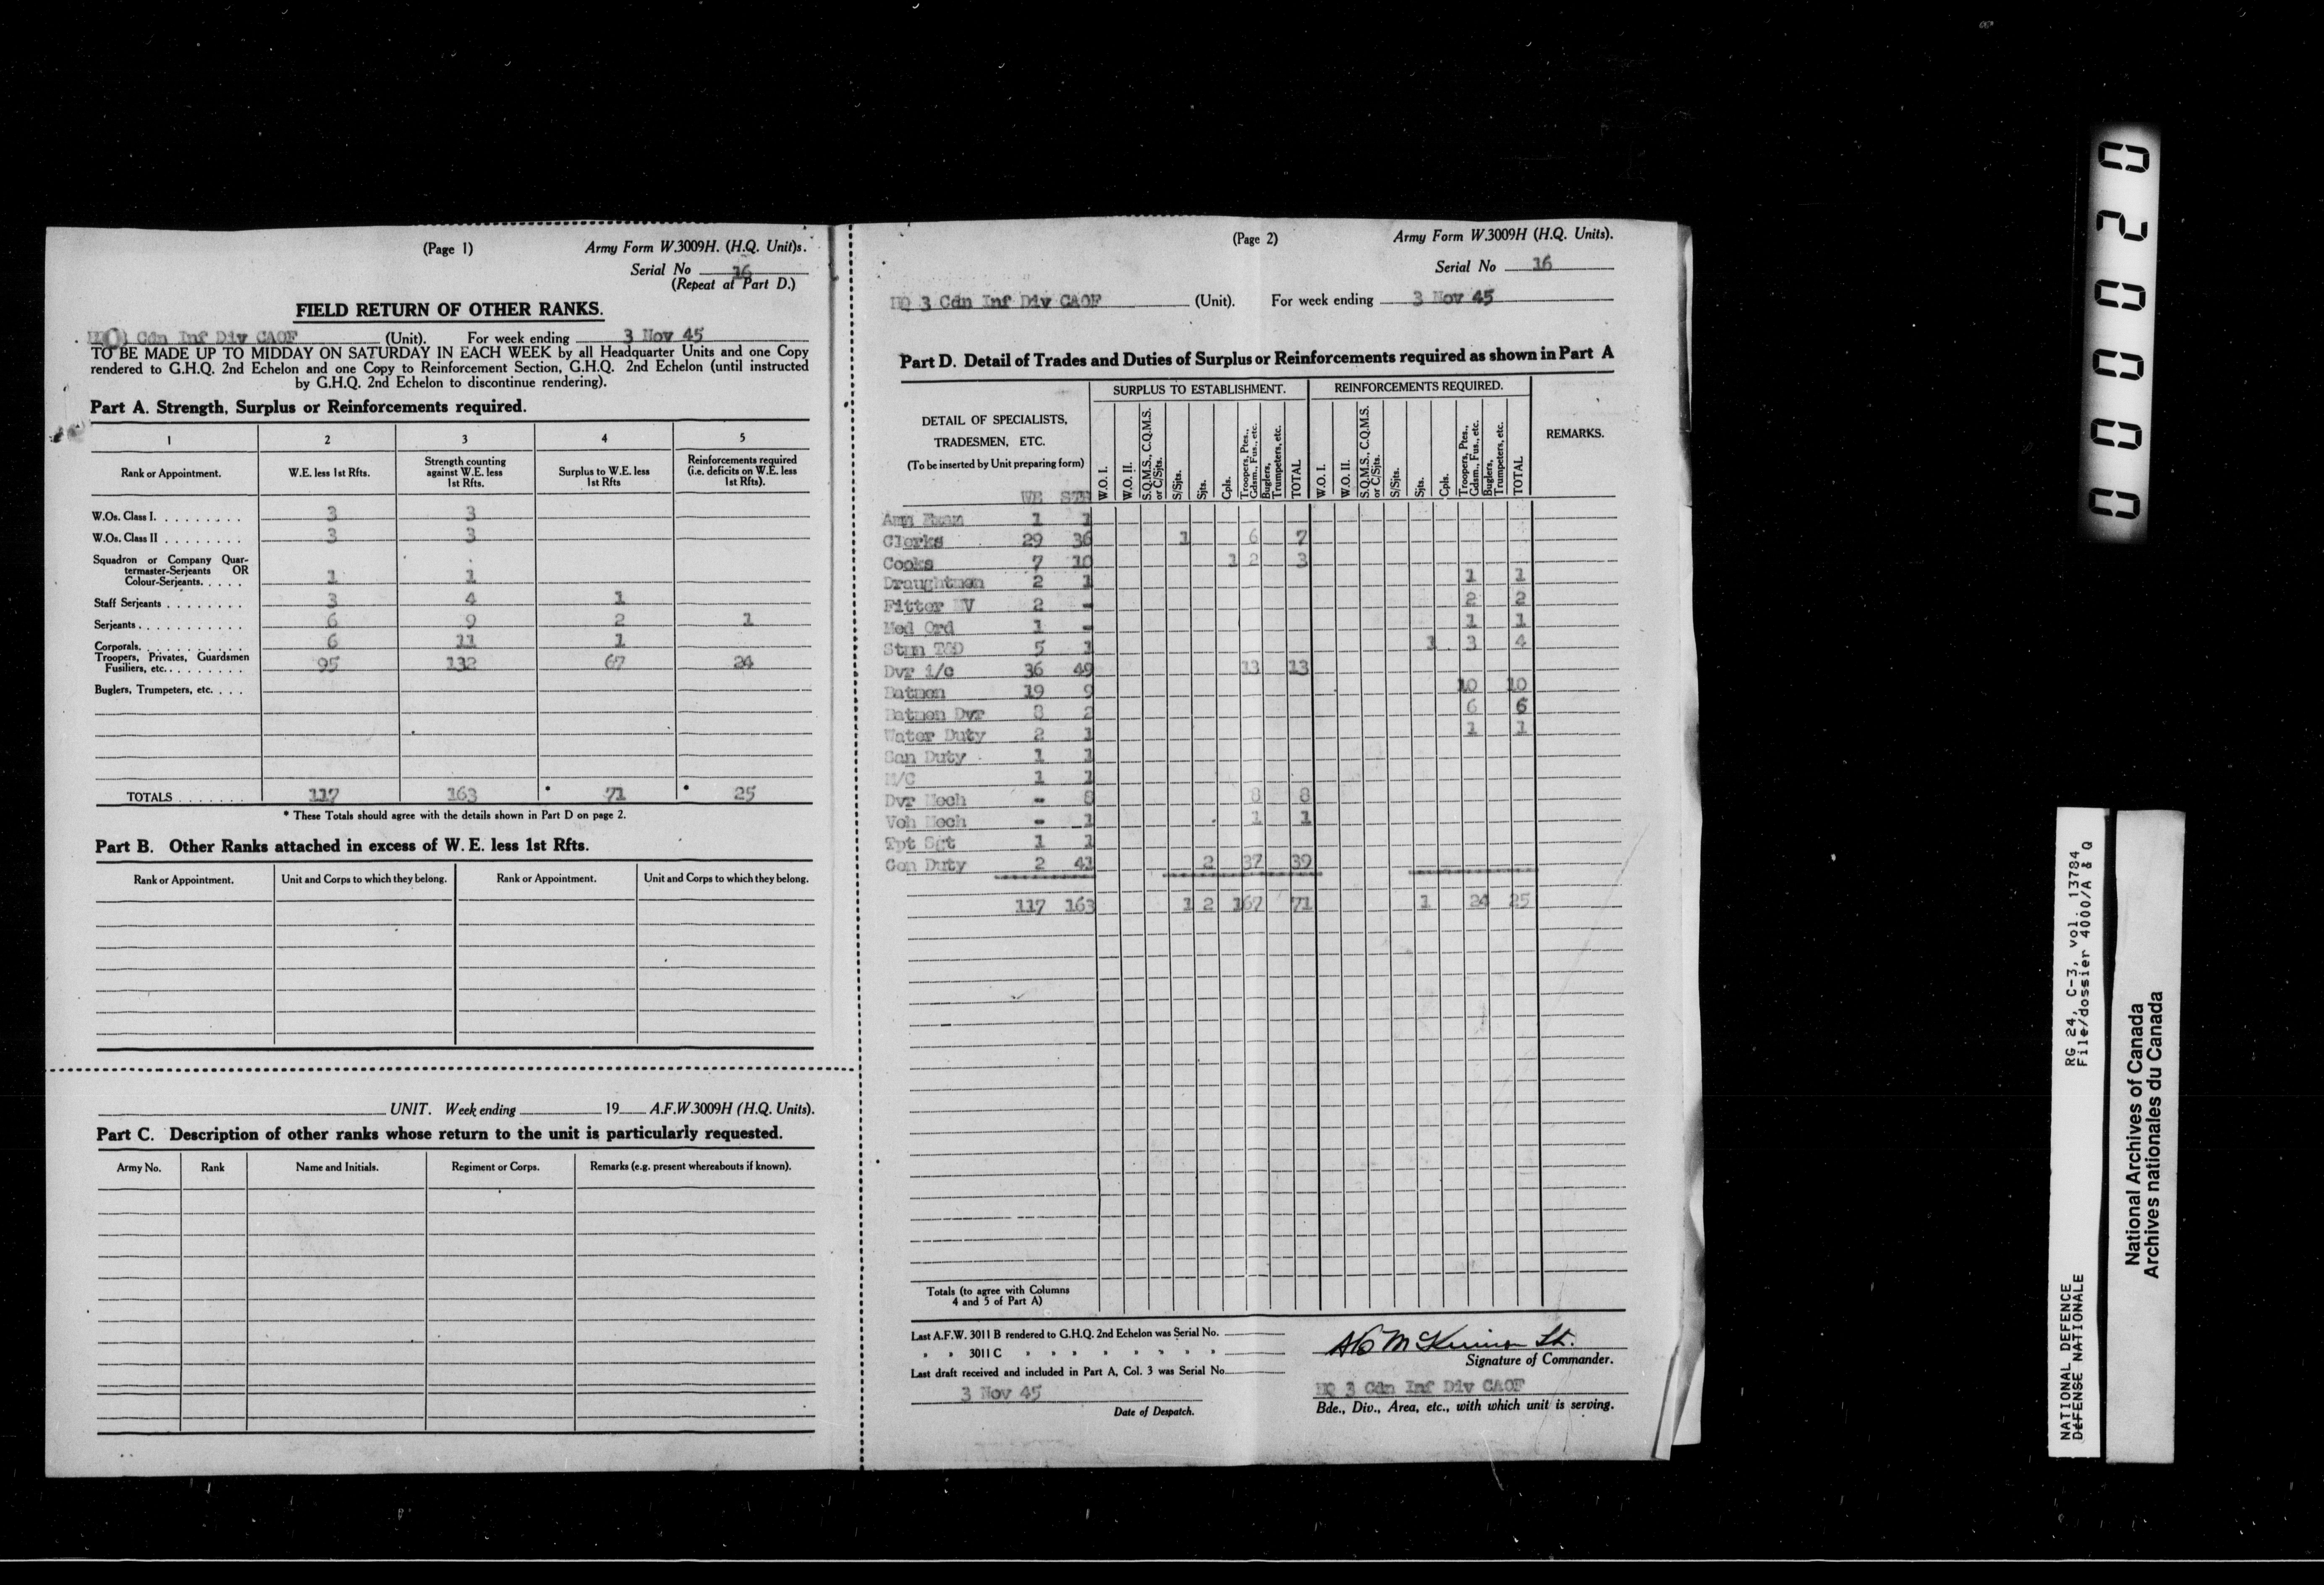 (Page 1) Army Form W.3009H. (H.Q. Unit)s.
Serial No 16
(Repeat at Part D.)
FIELD RETURN OF OTHER RANKS.
Cdn Inf Div CAOF (Unit). For week ending 3 Nov 45
TO BE MADE UP TO MIDDAY ON SATURDAY IN EACH WEEK by all Headquarter Units and one Copy
rendered to G.H.Q. 2nd Echelon and one Copy to Reinforcement Section, G.H.Q. 2nd Echelon (until instructed
by G.H.Q. 2nd Echelon to discontinue rendering).
Part A. Strength, Surplus or Reinforcements required.
1 2 3 4 5
Rank or Appointment. W.E. less 1st Rfts. Strength counting against W.E. less 1st Rfts. Surplus to W.E. less 1st Rfts Reinforcements required (i.e. deficits on W.E. less 1st Rfts).
W.Os. Class I. 3 3
W.Os. Class II 3 3
Squadron or Company Quar-
termaster-Serjeants OR
Colour-Serjeants. 1 1
Staff Serjeants 3 4 1
Serjeants 6 9 2 1
Corporals. 6 11 1
Troopers, Privates, Guardsmen
Fusiliers, etc. 95 132 67 24
Buglers, Trumpeters, etc.
TOTALS 117 163 * 71 * 25
* These Totals should agree with the details shown in Part D on page 2.
Part B. Other Ranks attached in excess of W.E. less 1st Rfts.
Rank or Appointment. Unit and Corps to which they belong. Rank or Appointment. Unit and Corps to which they belong.
UNIT. Week ending 19 A.F.W.3009H (H.Q. Units).
Part C. Description of other ranks whose return to the unit is particularly requested.
Army No. Rank Name and Initials. Regiment or Corps. Remarks (e.g. present whereabouts if known).
(Page 2) Army Form W.3009H (H.Q. Units).
Serial No 16
HQ 3 Cdn Inf Div CAOF (Unit). For week ending 3 Nov 45
Part D. Detail of Trades and Duties of Surplus or Reinforcements required as shown in Part A
SURPLUS TO ESTABLISHMENT. REINFORCEMENTS REQUIRED.
DETAIL OF SPECIALISTS,
TRADESMEN, ETC.
(To be inserted by Unit preparing form)
W.O. I. W.O. II. S.Q.M.S., C.Q.M.S. or C/Sjts. S/Sjts. Sjts. Cpls. Troopers, Ptes., Gdsm., Fus., etc. Buglers, Trumpeters, etc. TOTAL W.O. I. W.O. II. S.Q.M.S., C.Q.M.S. or C/Sjts. S/Sjts. Sjts. Cpls. Troopers, Ptes., Gdsm., Fus., etc. Buglers, Trumpeters, etc. TOTAL REMARKS.
WE STR
1 1
Clerks 29 36 1 6 7
Cooks 7 10 1 2 3
Draughtmen 2 1 1 1
Fitter MV 2 - 2 2
Med Ord 1 - 1 1
Stmn T&D 5 1 1 3 4
Dvr i/c 36 49 13 13
Batmen 19 9 10 10
Batmen Dvr 8 2 6 6
Water Duty 2 1 1 1
San Duty 1 1
M/C 1 1
Dvr Mech - 8 8 8
Veh Mech - 1 1 1
Tpt Sgt 1 1
Gen Duty 2 41 2 37 39
117 163 1 2 167 71 1 24 25
Totals (to agree with Columns
4 and 5 of Part A)
Last A.F.W. 3011 B rendered to G.H.Q. 2nd Echelon was Serial No.
" " 3011 C " " " " " " " " "
Last draft received and included in Part A, Col. 3 was Serial No.
3 Nov 45
Date of Despatch.
McKinnon Lt.
Signature of Commander.
HQ 3 Cdn Inf Div CAOF
Bde., Div., Area, etc., with which unit is serving.
0000020
RG 24, C-3, vol. 13784
File/dossier 4000/A & Q
NATIONAL DEFENCE
DÉFENSE NATIONALE
National Archives of Canada
Archives nationales du Canada